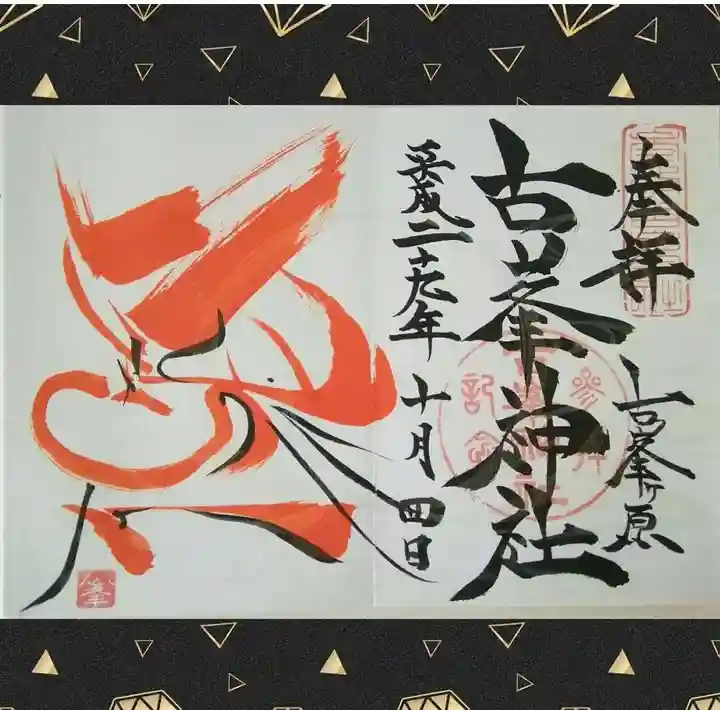 奉拝
古峯ヶ原
古峯神社
平成二十九年
十月四日
参拝
記念
峯